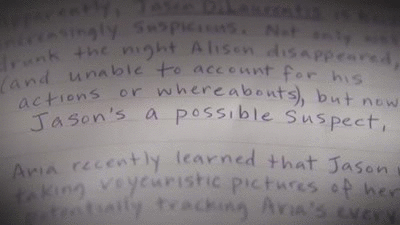 Apparently, Jason DiLaurentis is been
increasingly suspicious. Not only was
drunk the night Alison disappeared,
(and unable to account for his
actions or whereabouts), but now
Jason's a possible suspect,
Aria recently learned that Jason
taking voyeuristic pictures of her
potentially tracking Aria's every